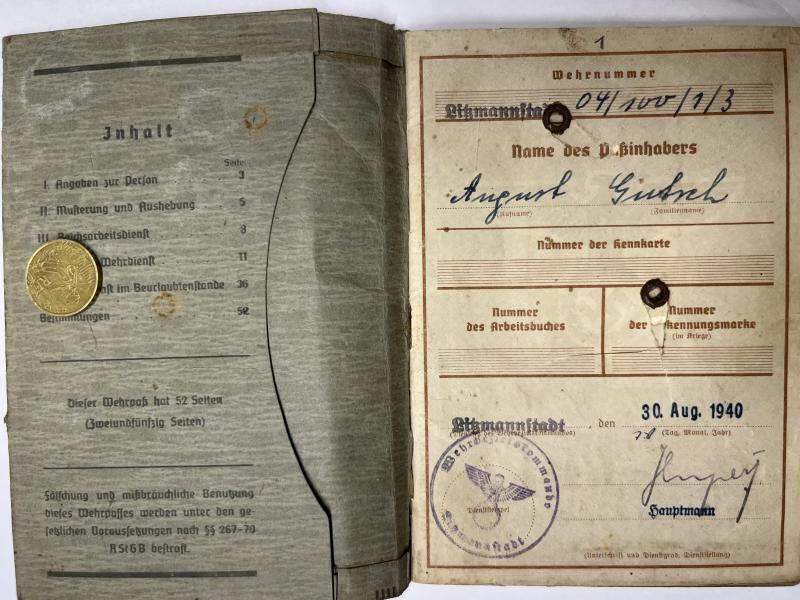 Inhalt
Seite
I. Angaben zur Person 3
II. Musterung und Aushebung 5
III. Reichsarbeitsdienst 8
Wehrdienst 11
im Beurlaubtenstande 36
Bestimmungen . . . . 52
Dieser Wehrpaß hat 52 Seiten
(Zweiundfünfzig Seiten)
Fälschung und mißbräuchliche Benutzung
dieses Wehrpasses werden unter den ge-
setzlichen Voraussetzungen nach §§ 267-70
RStGB bestraft.
1
Wehrnummer
Litzmannstadt 04/100/1/3
Name des Paßinhabers
August Gutsch
(Rufname) (Familienname)
Nummer der Kennkarte
Nummer
des Arbeitsbuches
Nummer
der Erkennungsmarke
(im Kriege)
Litzmannstadt, den 30. Aug. 1940
(Tag, Monat, Jahr)
Wehrbezirkskommando
Litzmannstadt
(Dienststempel)
Hauptmann
(Unterschrift und Dienstgrad, Dienststellung)